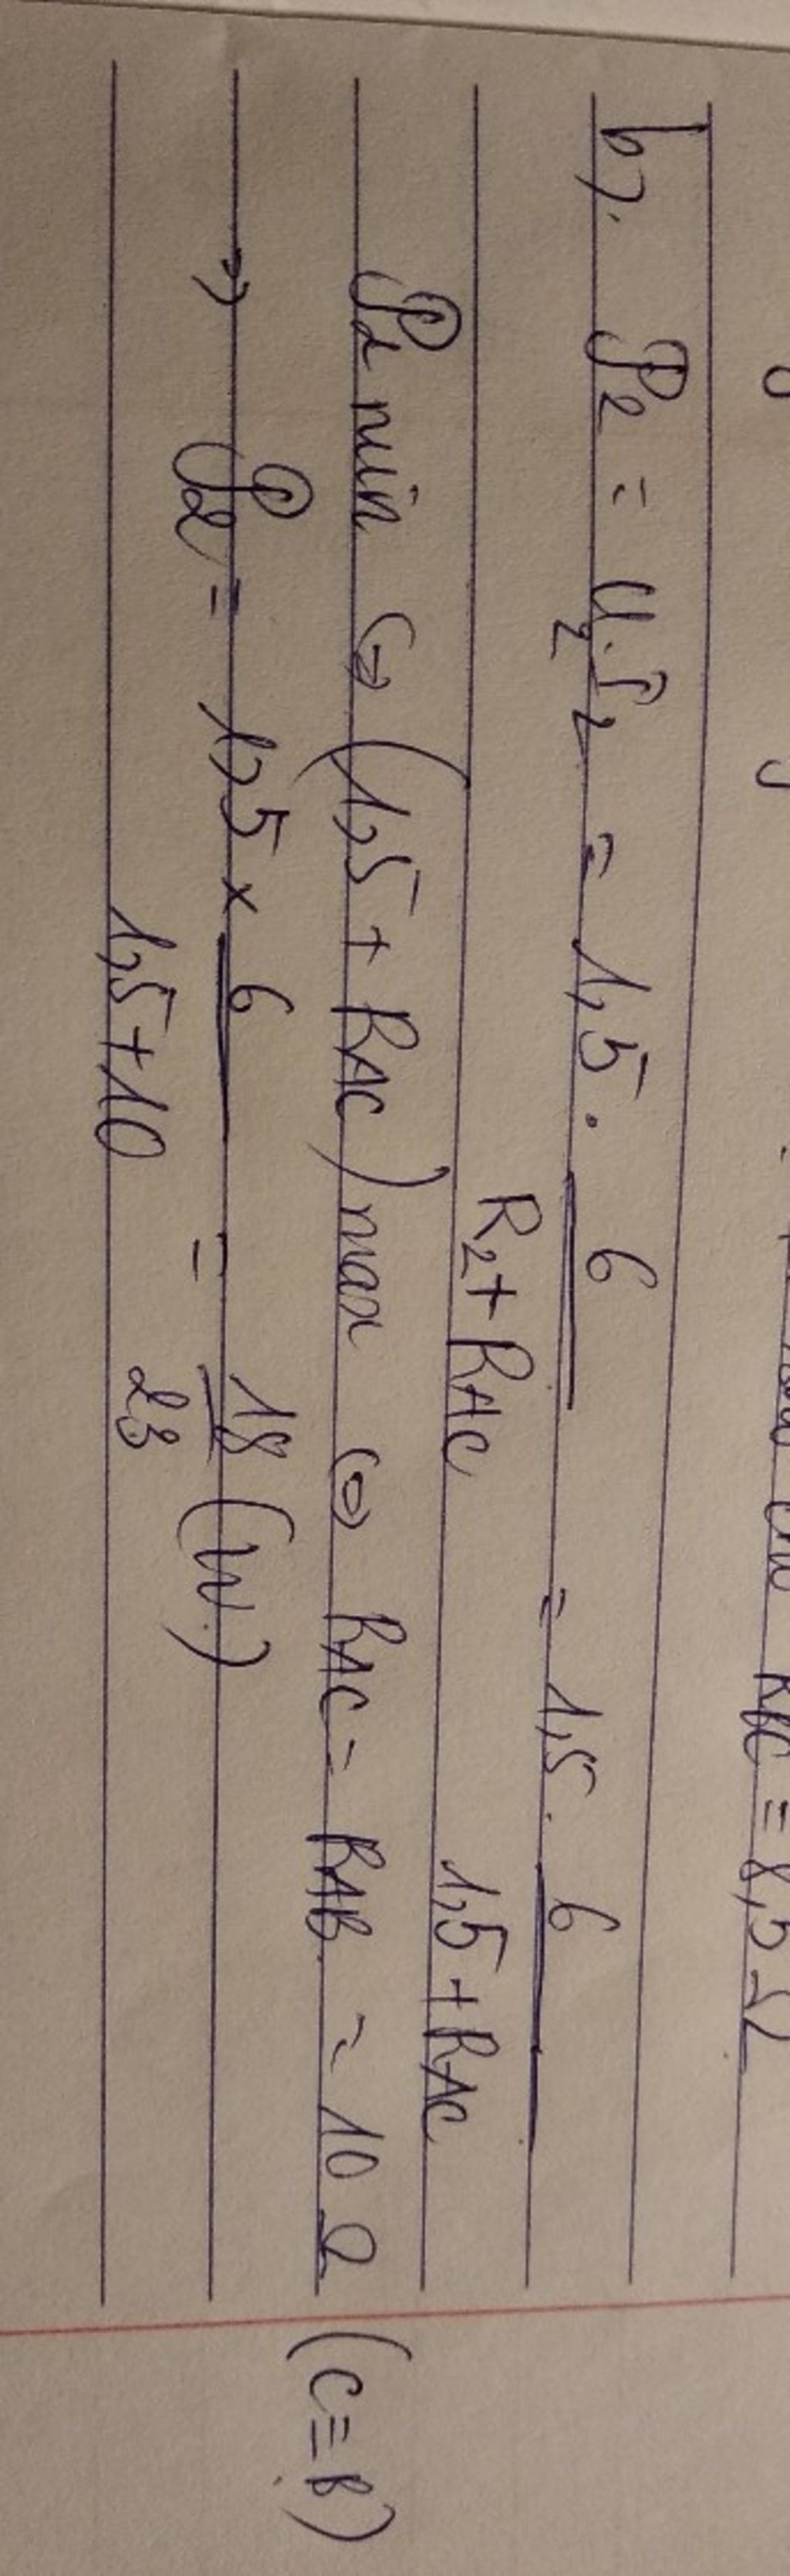 RBC = 8,5 Ω
b). P2 = U2.I2 = 1,5 . 6/(R2 + RAC) = 1,5 . 6/(1,5 + RAC)
P2 min ⇔ (1,5 + RAC) max ⇔ RAC = RAB = 10 Ω (C ≡ B)
⇒ P2 = 1,5 × 6/(1,5 + 10) = 18/23 (W)